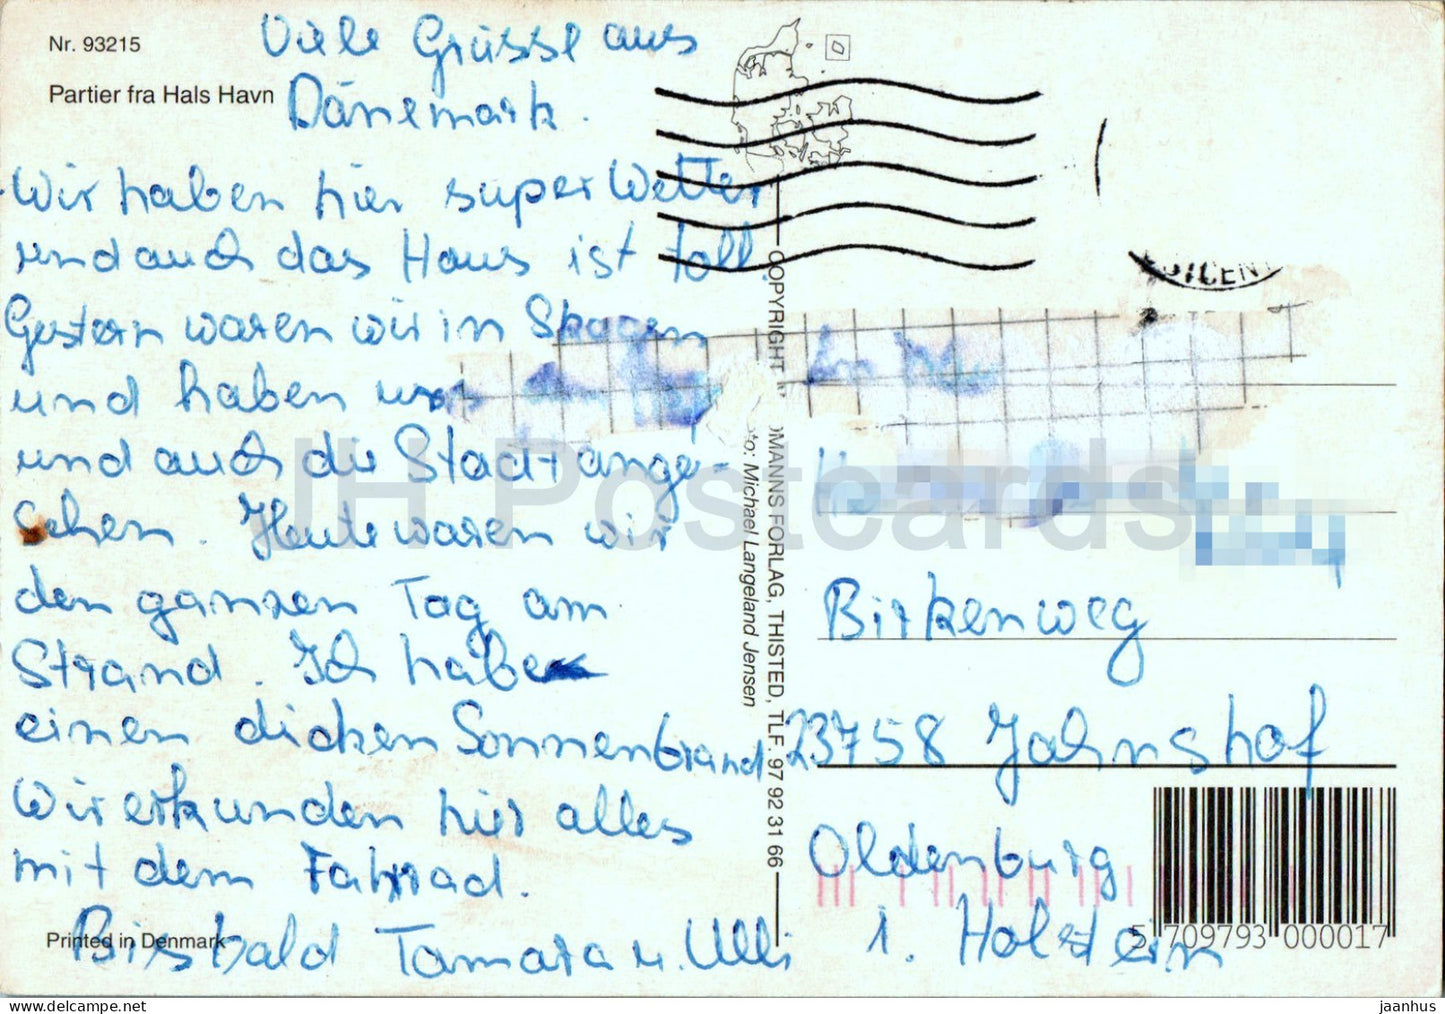 Nr. 93215
Partier fra Hals Havn
Viele Grüsse aus
Dänemark.
Wir haben hier super Wetter
und auch das Haus ist toll.
Gestern waren wir in Skagen
und haben
und auch die Stadt ange-
sehen. Heute waren wir
den ganzen Tag am
Strand. Ich habe
einen dicken Sonnenbrand
Wir erkunden hier alles
mit dem Fahrrad.
Bis bald Tamara u. Ulli
Printed in Denmark
COPYRIGHT
OMANNS FORLAG, THISTED, TLF. 97 92 31 66
to: Michael Langeland Jensen
Birkenweg
23758 Jahnshof
Oldenburg
i. Holstein
5 709793 000017
JH Postcards
www.delcampe.net
jaanhus